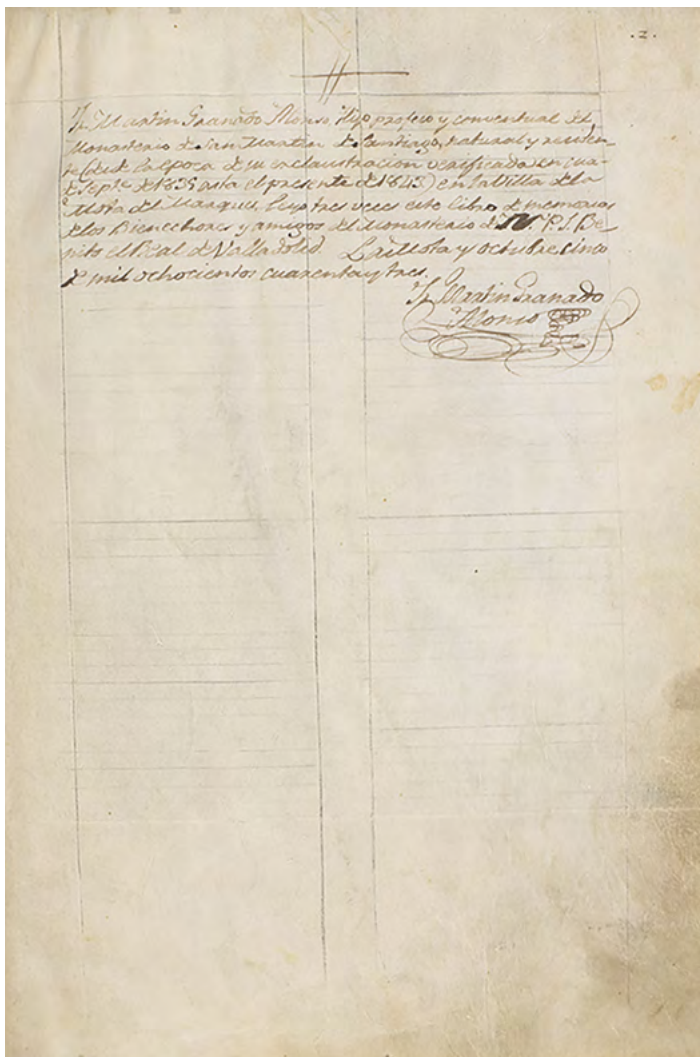 .2.
Fr. Martin Granado Alonso, Hijo profeso y conventual del
Monasterio de San Martin de Santiago, natural y residen-
te (desde la epoca de su exclaustracion verificada en cua-
de Septe. de 1835 asta el presente de 1843) en la Villa de la
Mota del Marques, leyo tres veces este libro de memorias
de los Bienechores y amigos del Monasterio de N. P. S. Be-
nito el Real de Valladolid. La Mota y octubre cinco
de mil ochocientos cuarenta y tres.
Fr. Martin Granado
Alonso